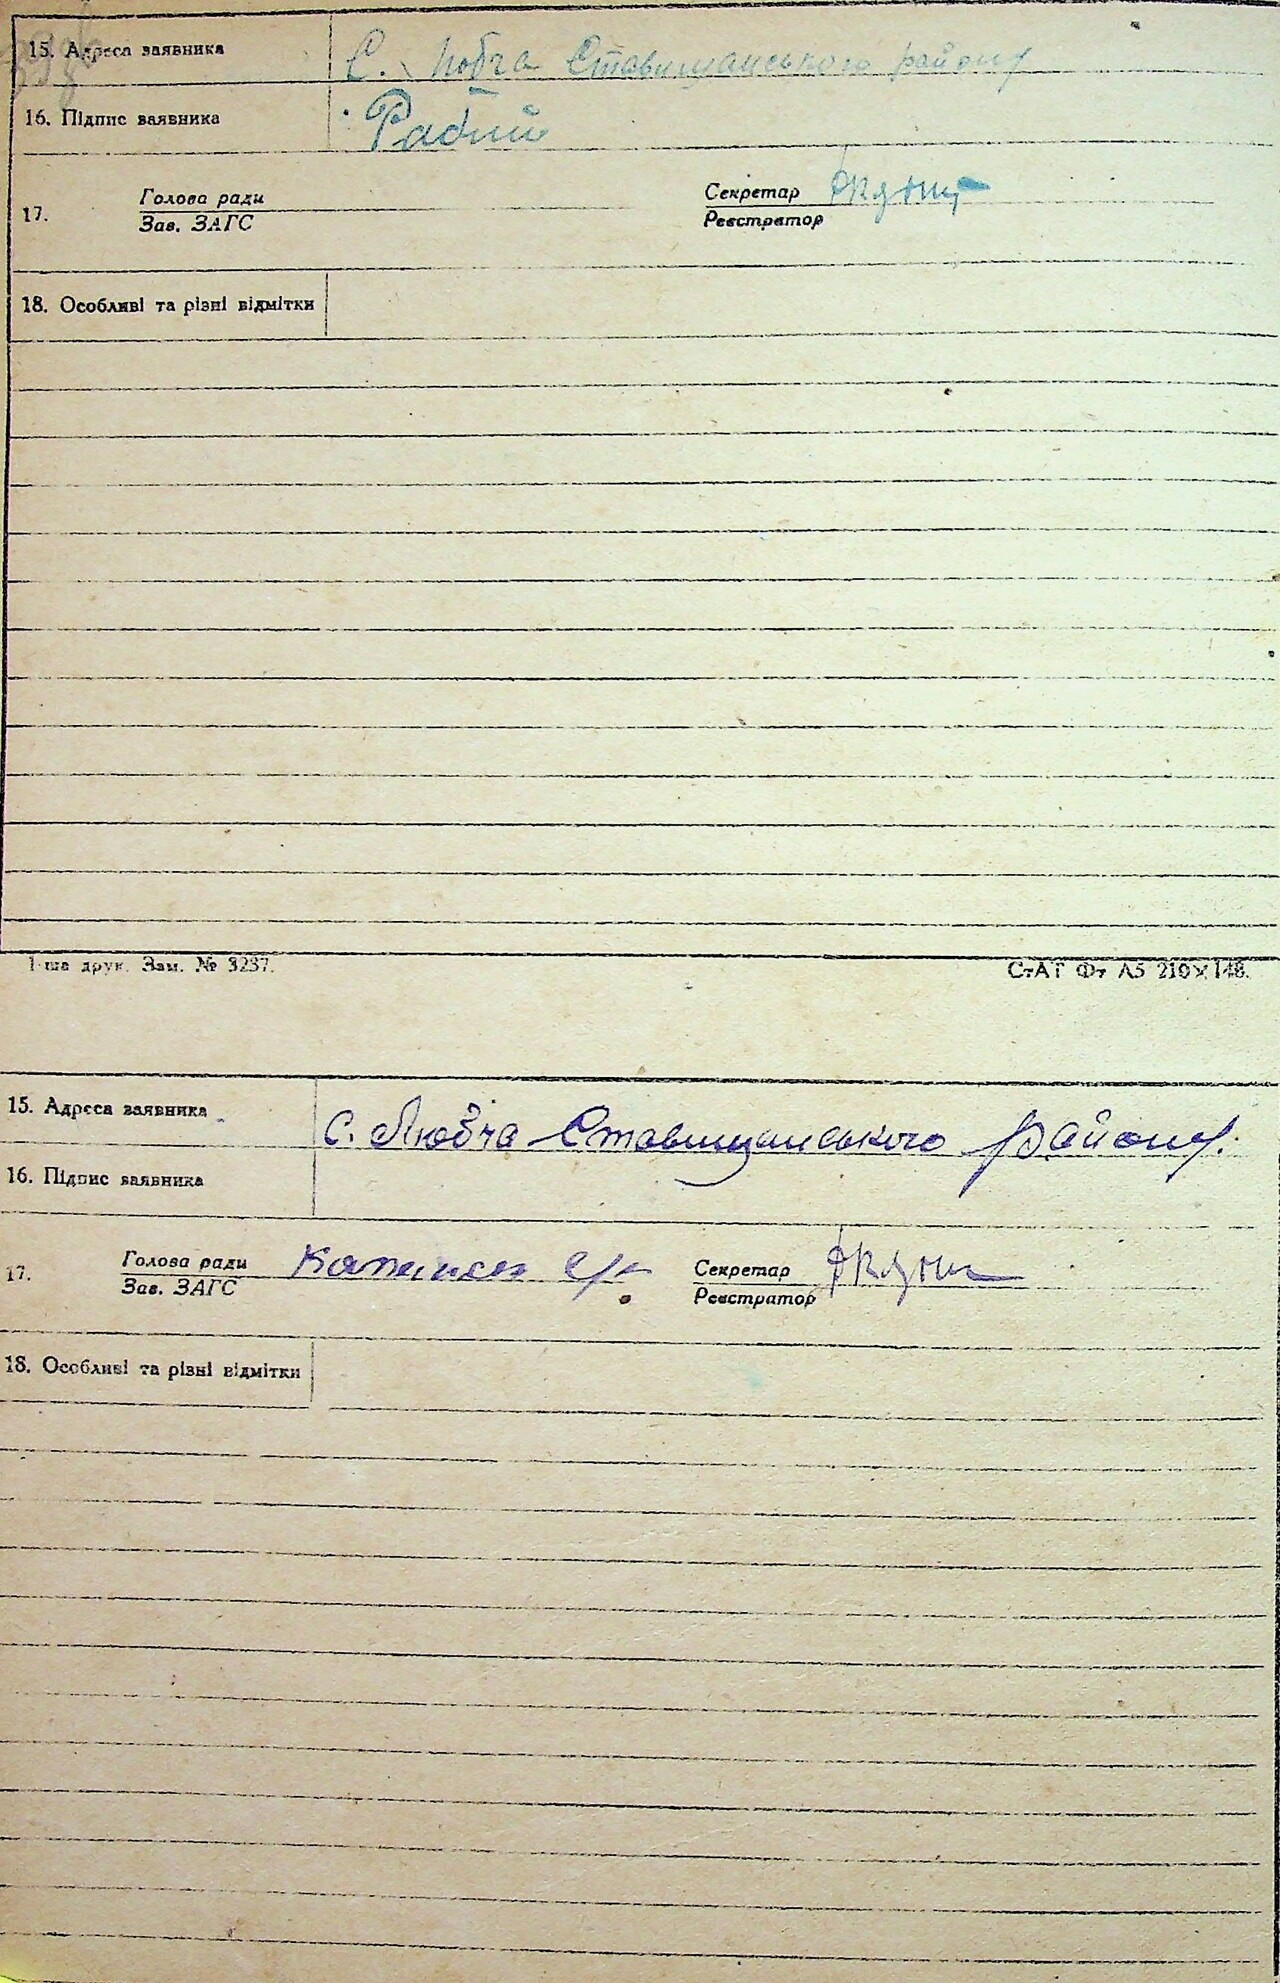 15. Адреса заявника С. Любча Ставищанського району
16. Підпис заявника Рабий
Голова ради Секретар
17.
Зав. ЗАГС Реєстратор
18. Особливі та різні відмітки
1-ша друк. Зам. № 3237. СтАТ Фт А5 210×148.
15. Адреса заявника с. Любча Ставищанського району.
16. Підпис заявника
Голова ради Секретар
17.
Зав. ЗАГС Реєстратор
18. Особливі та різні відмітки